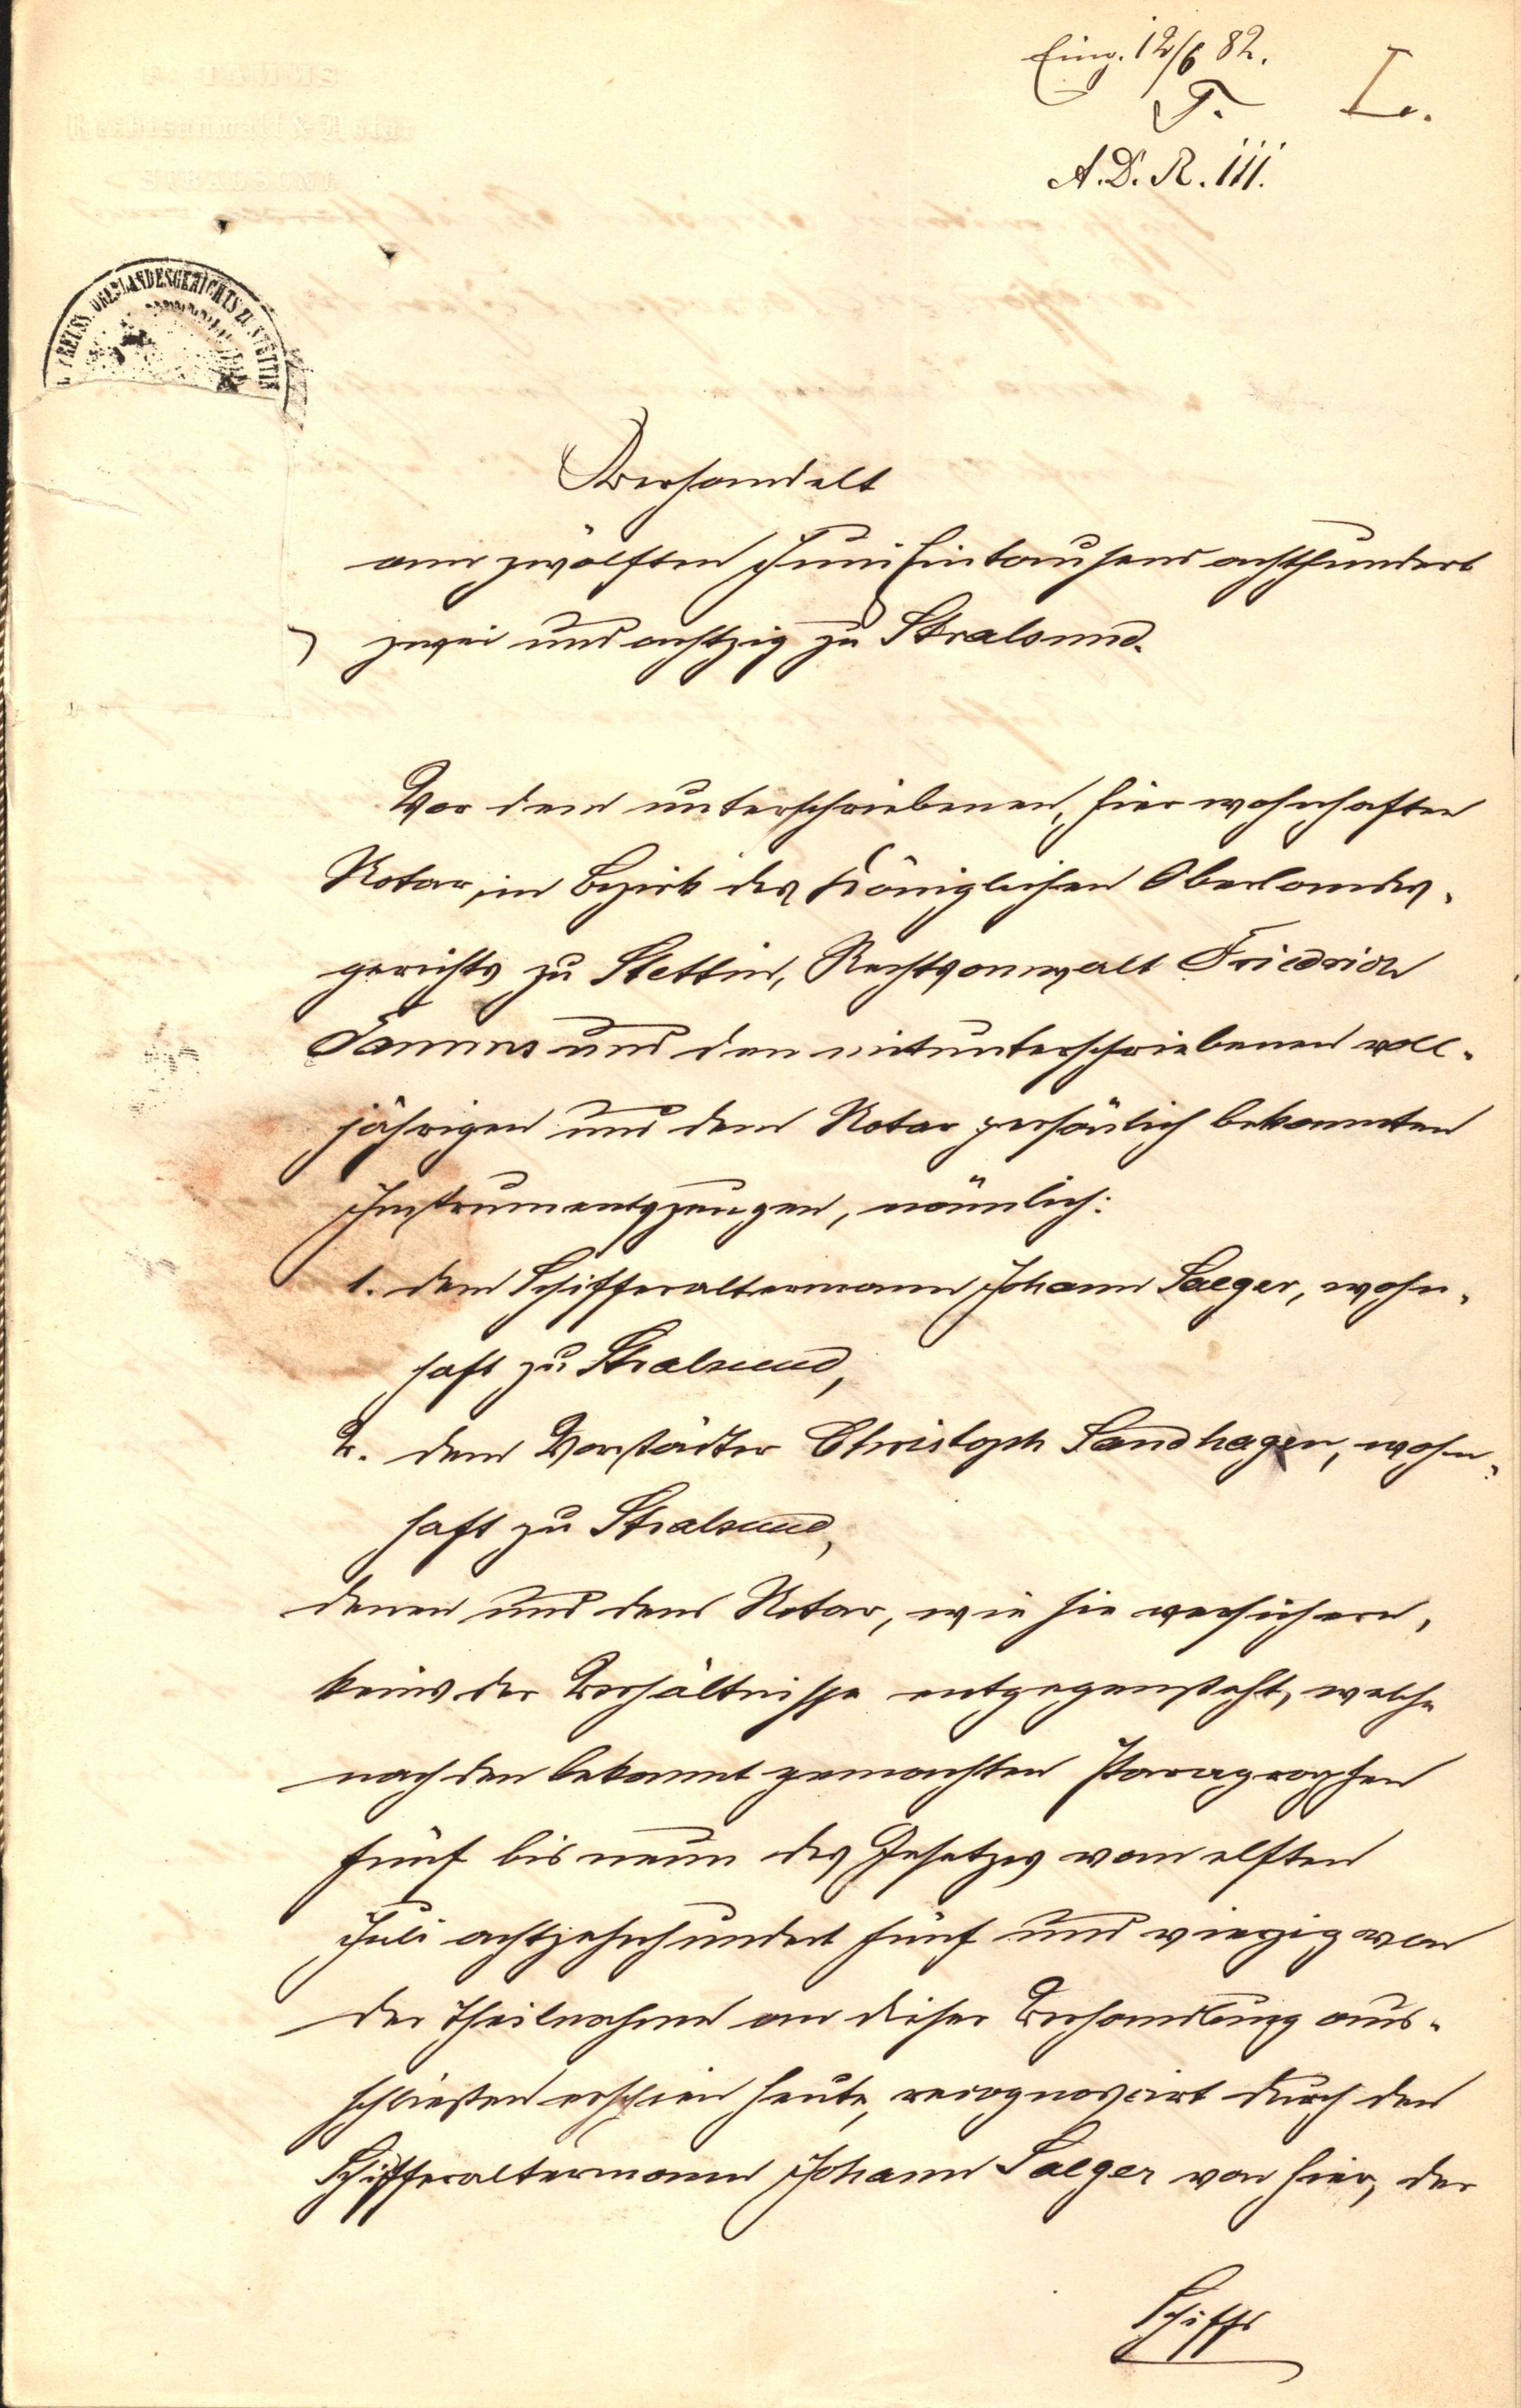 Eing. 12/6 82.
T.
I.
A. D. R. III.
TAMMS
Rechtsanwalt & Notar
STRALSUND
PREUSS. OBERLANDESGERICHTS ZU STETTIN
Verhandelt
am zwölften Juni Eintausend achthundert
zwei und achtzig zu Stralsund.
Vor dem unterschriebenen, hier wohnhaften
Notar im Bezirk des Königlichen Oberlandes-
gerichts zu Stettin, Rechtsanwalt Friedrich
Tamms und den mitunterschriebenen voll-
jährigen und dem Notar persönlich bekannten
Instrumentszeugen, nämlich:
1. dem Schifferaltermann Johann Saeger, wohn-
haft zu Stralsund,
2. dem Vorstädter Christoph Sandhagen, wohn-
haft zu Stralsund,
denen und dem Notar, wie sie versichern,
keins der Verhältnisse entgegensteht, welche
nach den bekannt gemachten Paragraphen
fünf bis neun des Gesetzes vom elften
Juli achtzehnhundert fünf und vierzig von
der Theilnahme an dieser Verhandlung aus-
schließen erschien heute, recognoscirt durch den
Schifferaltermann Johann Saeger von hier, der
Schiffs